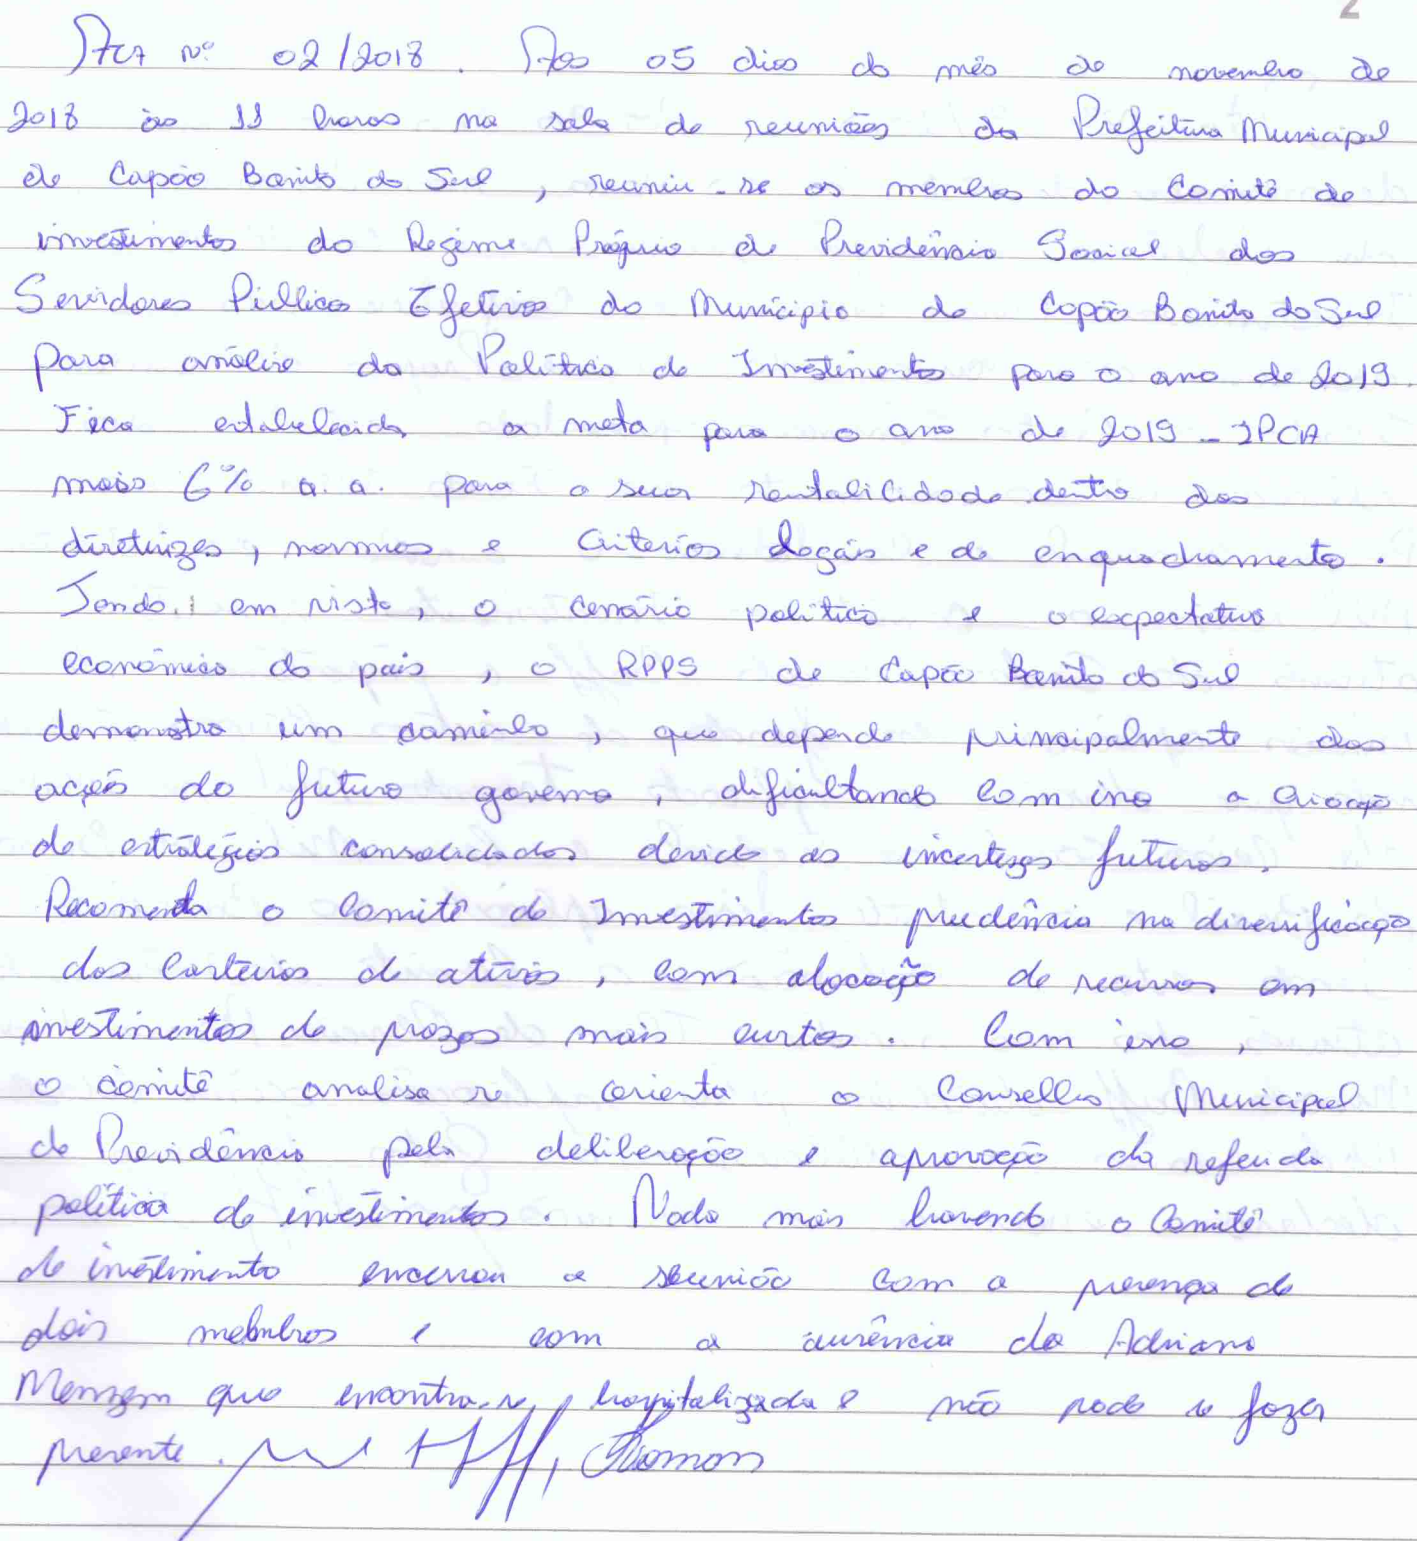 2
Ata Nº 02/2018. Aos 05 dias do mês de novembro de
2018 às 11 horas na sala de reuniões da Prefeitura Municipal
de Capão Bonito do Sul, reuniu-se os membros do Comitê de
investimentos do Regime Próprio de Previdência Social dos
Servidores Públicos Efetivos do Município de Capão Bonito do Sul
para análise da Política de Investimentos para o ano de 2019.
Fica estabelecida a meta para o ano de 2019 - IPCA
mais 6% a.a. para a sua rentabilidade dentro das
diretrizes, normas e criterios legais e de enquadramento.
Tendo em vista, o cenário politico e a expectativa
econômica do país, o RPPS de Capão Bonito do Sul
demonstra um caminho, que depende principalmente das
ações do futuro governo, dificultando com isso a criação
de estratégias consolidadas devido as incertezas futuras.
Recomenda o Comitê de Investimentos prudência na diversificação
das carteiras de ativos, com alocação de recursos em
investimentos de prazos mais curtos. Com isso,
o comitê analisa e orienta o Conselho Municipal
de Previdência pela deliberação e aprovação da referida
política de investimentos. Nada mais havendo o Comitê
de investimento encerrou a reunião com a presença de
dois membros e com a ausência da Adriana
Menzem que encontra-se hospitalizada e não pode se fazer
presente.